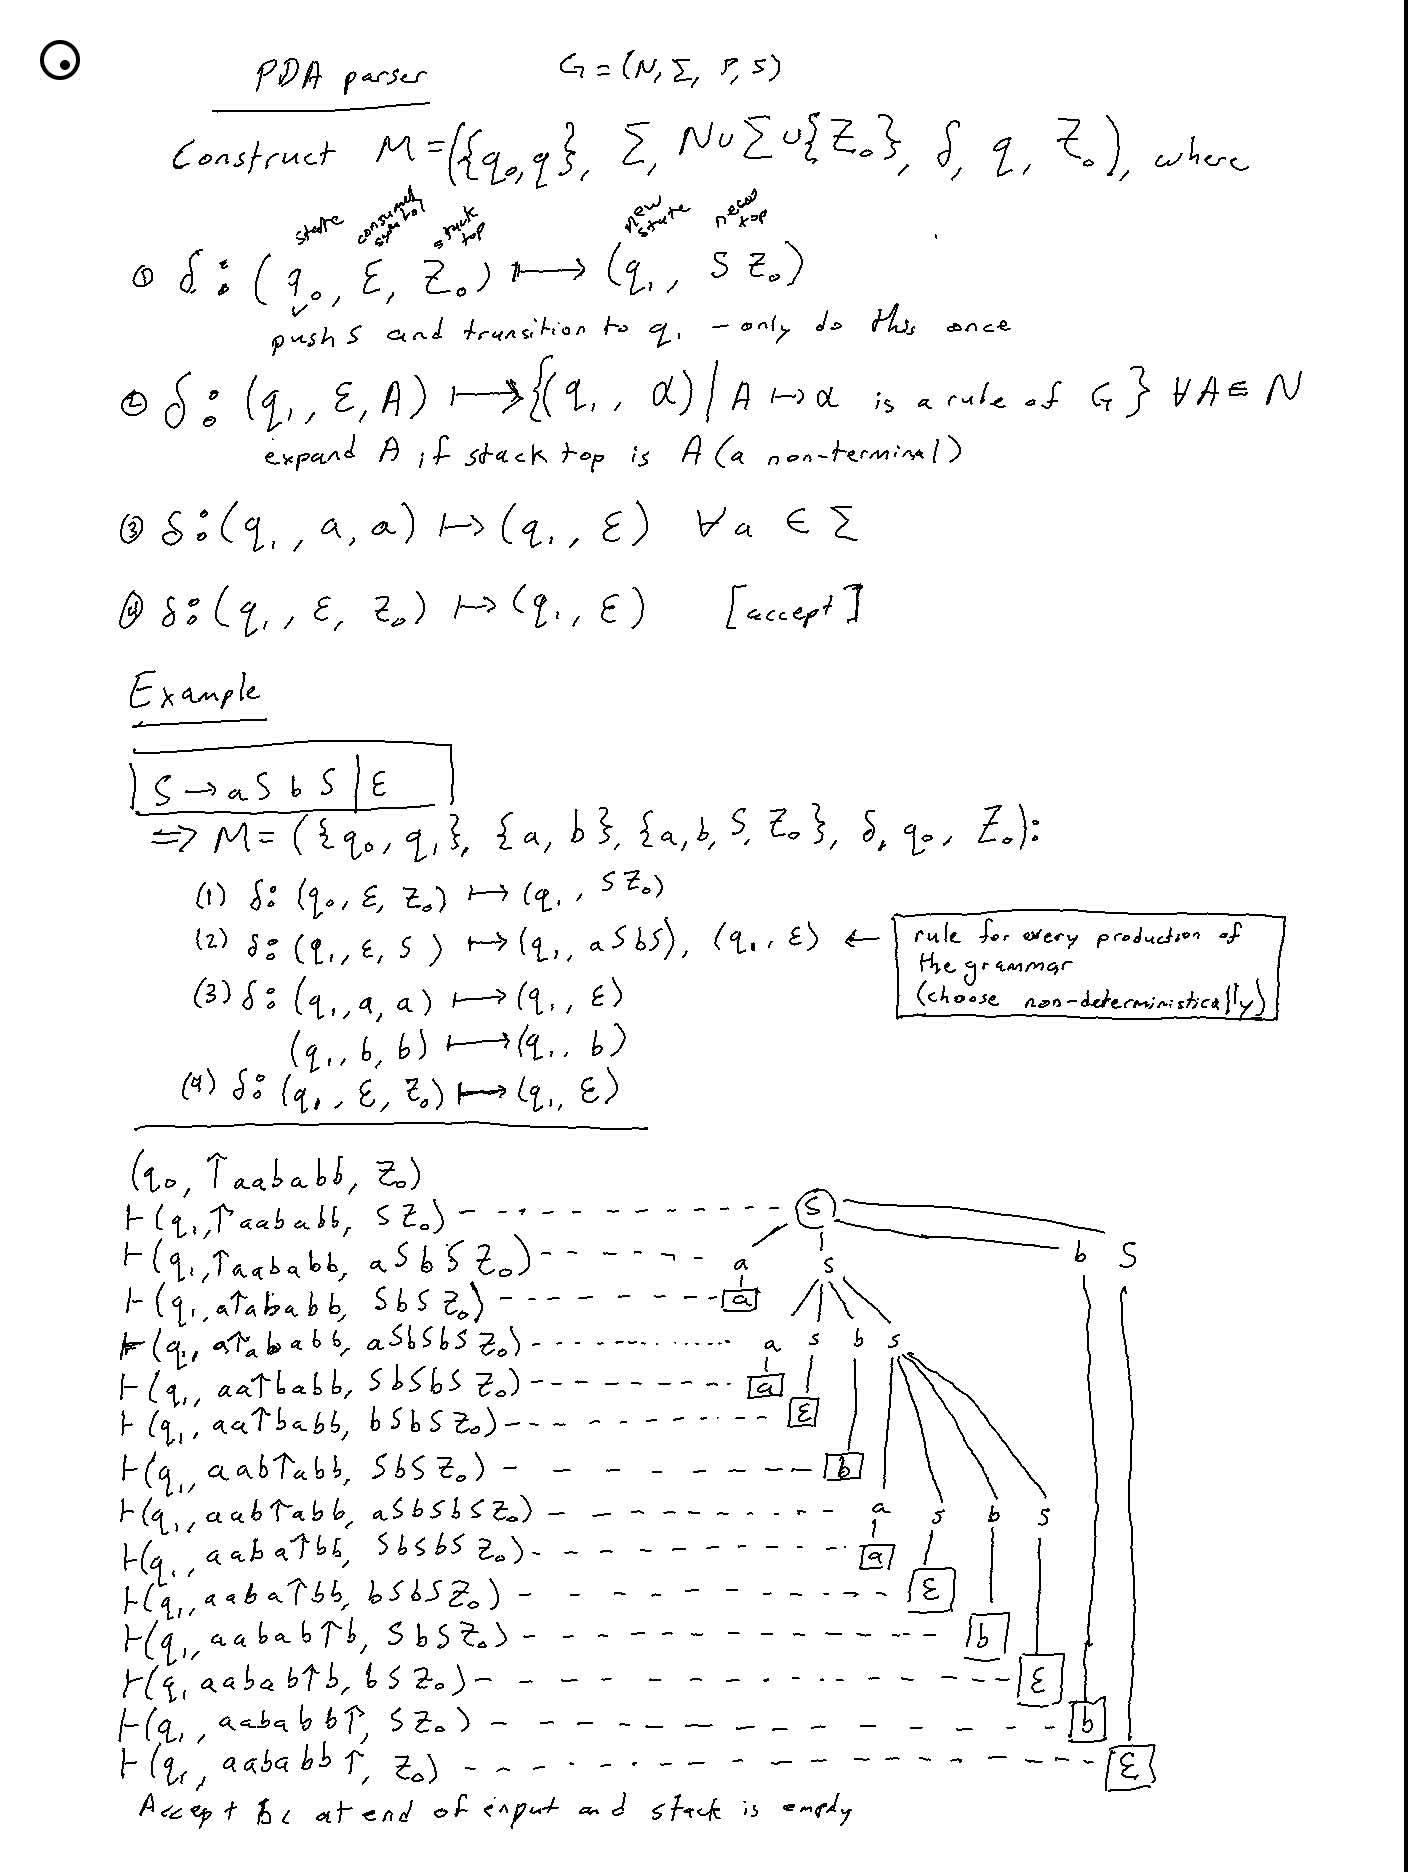 PDA parser G = (N, Σ, P, S)
Construct M = ({q₀, q}, Σ, N∪Σ∪{Z₀}, δ, q, Z₀), where
state consumed symbol stack top new state new top
① δ: (q₀, ε, Z₀) ⟼ (q₁, S Z₀)
push S and transition to q₁ - only do this once
② δ: (q₁, ε, A) ⟼ {(q₁, α) | A ↦ α is a rule of G} ∀A ∈ N
expand A if stack top is A (a non-terminal)
③ δ: (q₁, a, a) ↦ (q₁, ε) ∀a ∈ Σ
④ δ: (q₁, ε, Z₀) ↦ (q₁, ε) [accept]
Example
S → aSbS | ε
⇒ M = ({q₀, q₁}, {a, b}, {a, b, S, Z₀}, δ, q₀, Z₀):
(1) δ: (q₀, ε, Z₀) ⟼ (q₁, S Z₀)
(2) δ: (q₁, ε, S) ⟼ (q₁, aSbS), (q₁, ε) ← rule for every production of
the grammar
(choose non-deterministically)
(3) δ: (q₁, a, a) ⟼ (q₁, ε)
(q₁, b, b) ⟼ (q₁, b)
(4) δ: (q₁, ε, Z₀) ⟼ (q₁, ε)
(q₀, ↑aababb, Z₀)
⊢ (q₁, ↑aababb, SZ₀) S
⊢ (q₁, ↑aababb, aSbSZ₀) a S b S
⊢ (q₁, a↑ababb, SbSZ₀) a
⊢ (q₁, a↑ababb, aSbSbSZ₀) a S b S
⊢ (q₁, aa↑babb, SbSbSZ₀) a
⊢ (q₁, aa↑babb, bSbSZ₀) ε
⊢ (q₁, aab↑abb, SbSZ₀) b
⊢ (q₁, aab↑abb, aSbSbSZ₀) a S b S
⊢ (q₁, aaba↑bb, SbSbSZ₀) a
⊢ (q₁, aaba↑bb, bSbSZ₀) ε
⊢ (q₁, aabab↑b, SbSZ₀) b
⊢ (q₁ aabab↑b, bSZ₀) ε
⊢ (q₁, aababb↑, SZ₀) b
⊢ (q₁, aababb↑, Z₀) ε
Accept bc at end of input and stack is empty